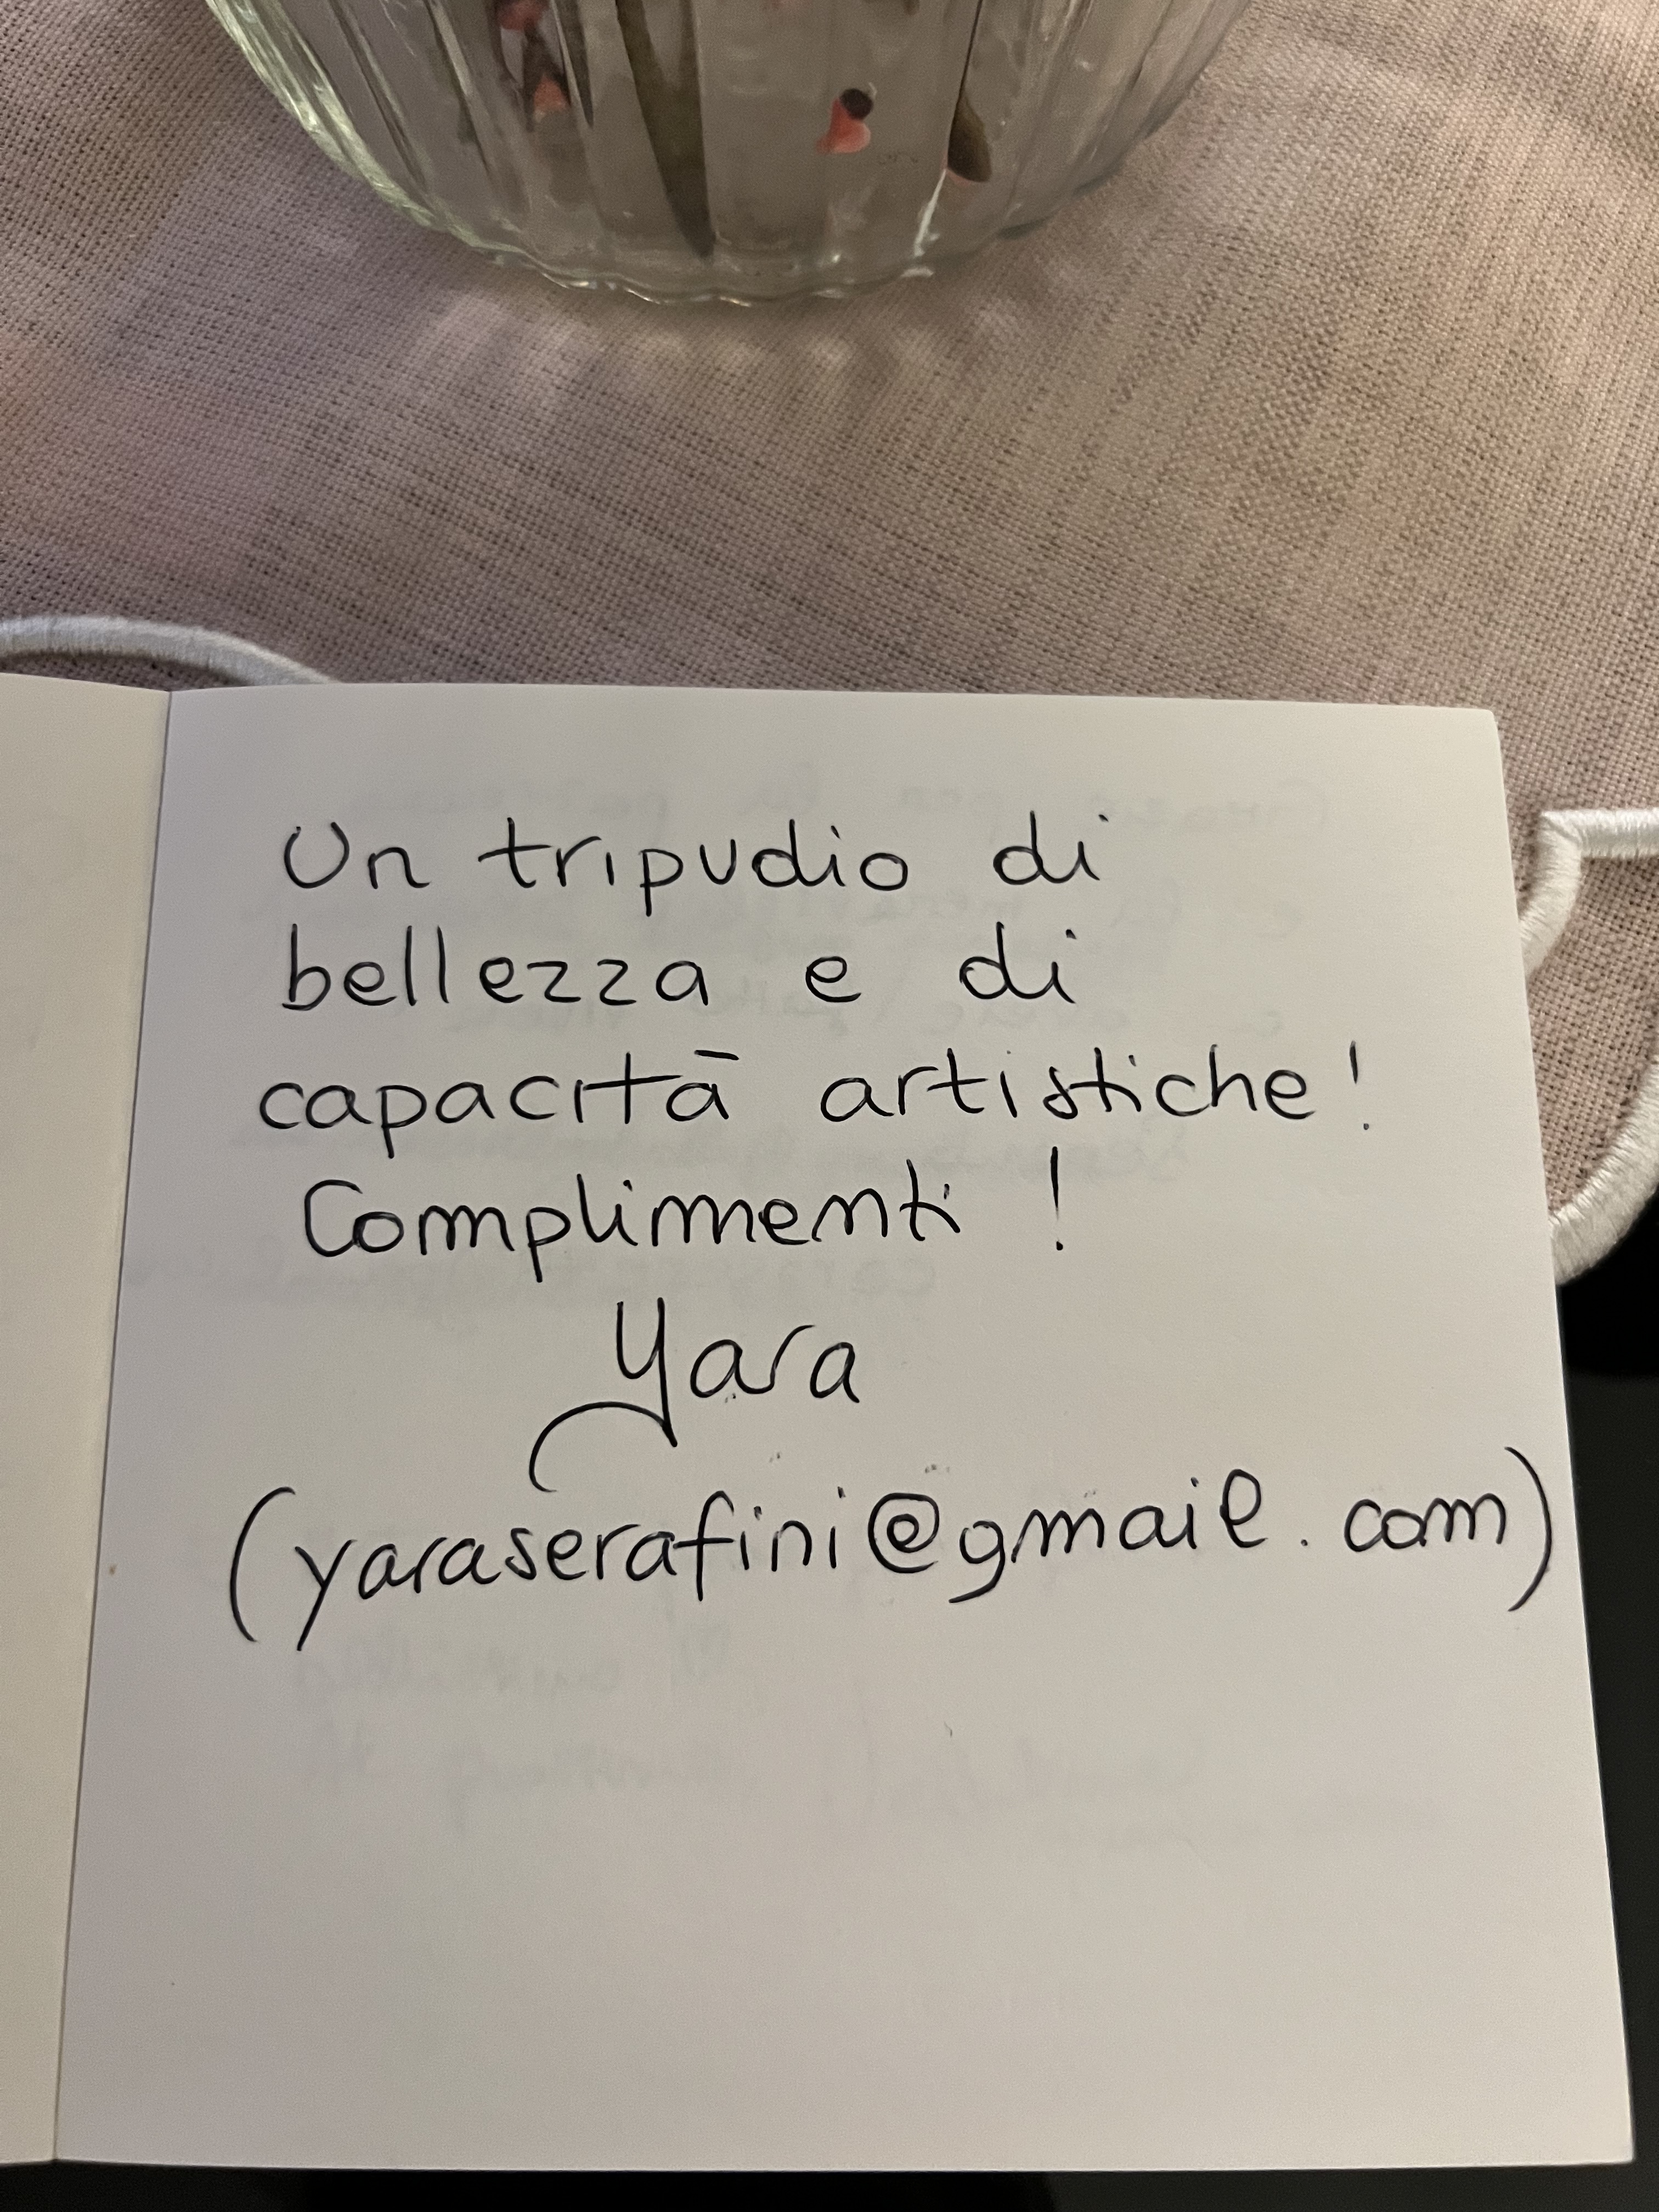 Un tripudio di
bellezza e di
capacità artistiche!
Complimenti!
Yara
(yaraserafini@gmail.com)